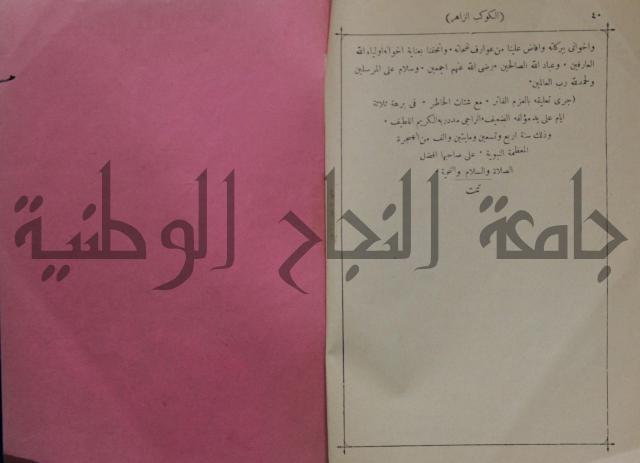 ٤٠
(الكوكب الزاهر)
واخوانى ببركاته وافاض علينا من عوارف نفحاته ۰ واتحفنا بعناية اخوانه اولياء الله
العارفين ۰ وعباد الله الصالحين ۰ رضى الله عنهم اجمعين ۰ وسلام على المرسلين
والحمد لله رب العالمين ۰
(جرى تعليقه بالعزم الفاتر ۰ مع شتات الخاطر ۰ فى برهة ثلاثة
ايام على يد مؤلفه الضعيف ۰ الراجى مدد ربه الكريم اللطيف ۰
وذلك سنة اربع وتسعين ومايتين والف من الهجرة
المعظمة النبوية ۰ على صاحبها افضل
الصلاة والسلام والتحية ۰
تمت
جامعة النجاح الوطنية